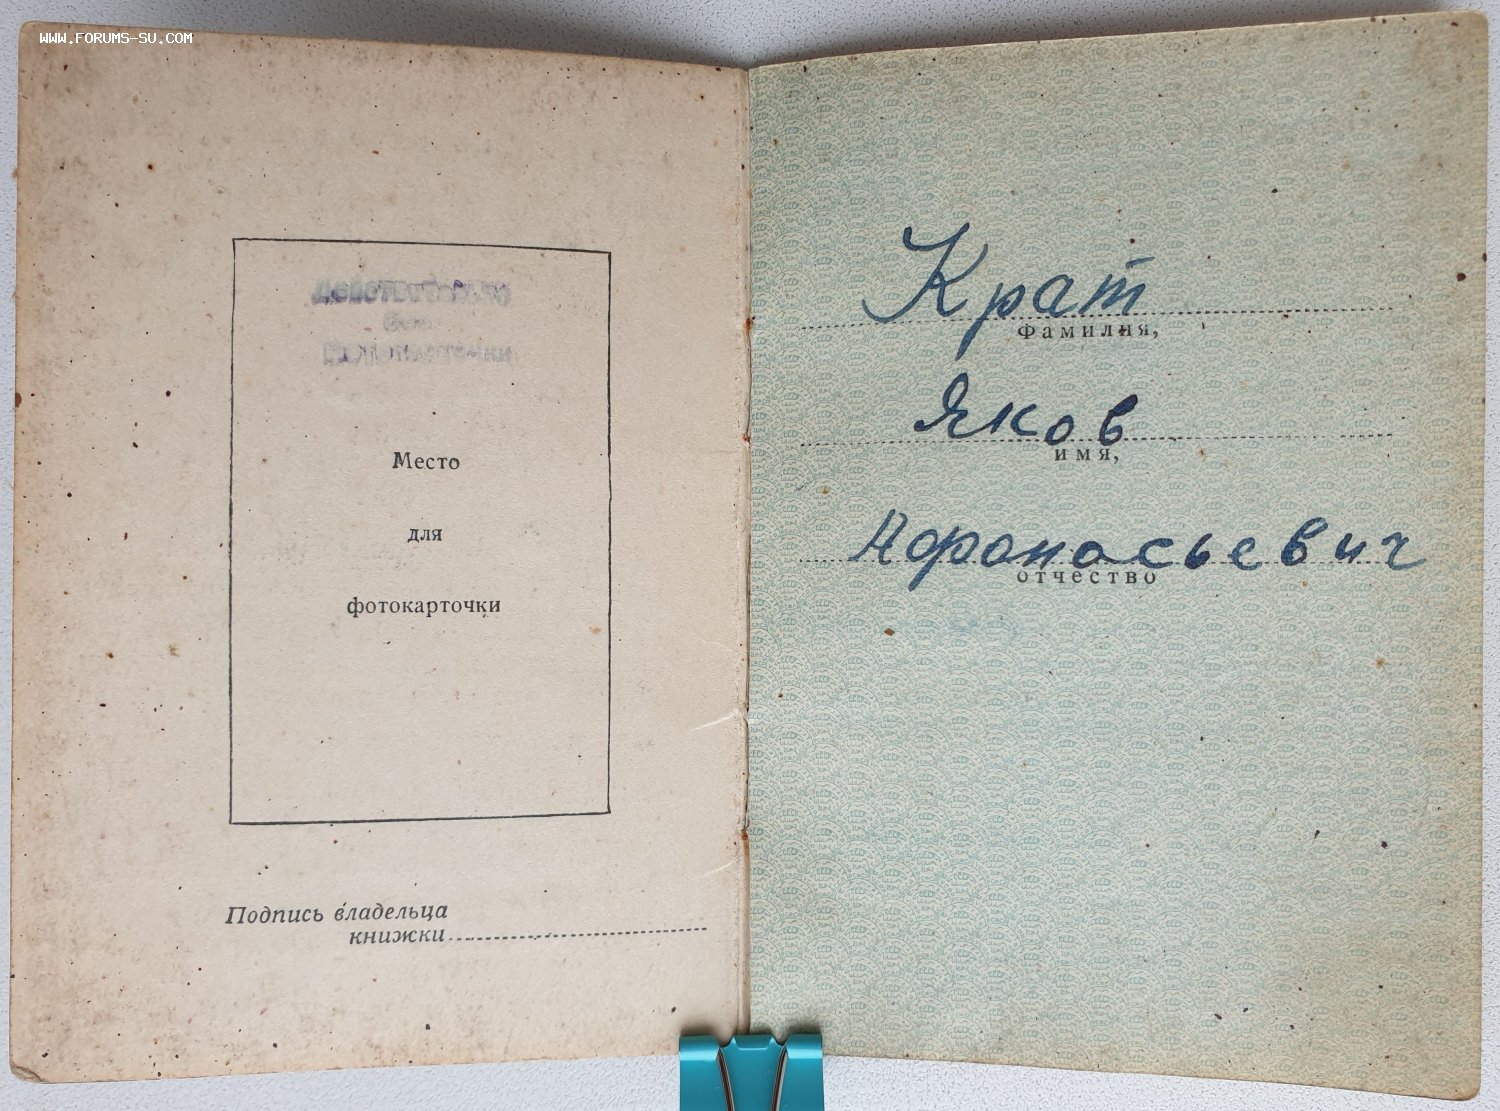 WWW.FORUMS-SU.COM
Действительно
без
фотокарточки
Место
для
фотокарточки
Подпись владельца
книжки
Крат
Фамилия,
Яков
имя,
Афонасьевич
отчество